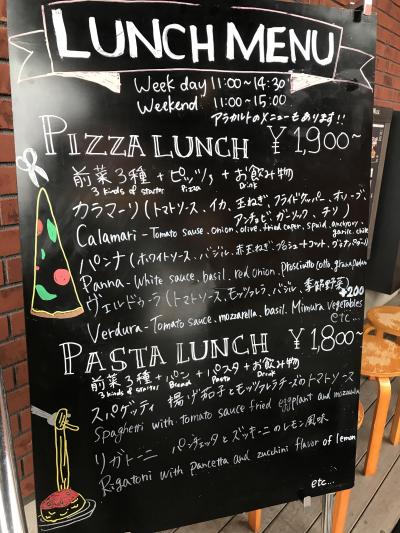 LUNCH MENU
Week day 11:00~14:30
Weekend 11:00~15:00
アラカルトのメニューもあります!!
PIZZA LUNCH ¥1,900~
前菜3種+ピッツァ+お飲み物
3 kinds of starter Pizza Drink
カラマーリ(トマトソース、イカ、玉ねぎ、フライドケッパー、オリーブ、
アンチョビ、ガーリック、チリ)
Calamari - Tomato sause, onion, olive, fried caper, squid, anchovy, garlic, chile
パンナ(ホワイトソース、バジル、赤玉ねぎ、プロシュートコット、グラナパダーノ)
Panna - White sauce, basil, red onion, Prosciutto cotto, grana Padano
ヴェルドゥーラ(トマトソース、モッツァレラ、バジル、季節野菜) +200
Verdura - Tomato sauce, mozzarella, basil, Mimura vegetables
etc...
PASTA LUNCH ¥1,800~
前菜3種+パン+パスタ+お飲み物
3 kinds of starter Bread Pasta Drink
スパゲッティ 揚げ茄子とモッツァレラチーズのトマトソース
Spaghetti with tomato sauce fried eggplant and mozzarella
リガトーニ パンチェッタとズッキーニのレモン風味
Rigatoni with pancetta and zucchini flavor of lemon
etc...